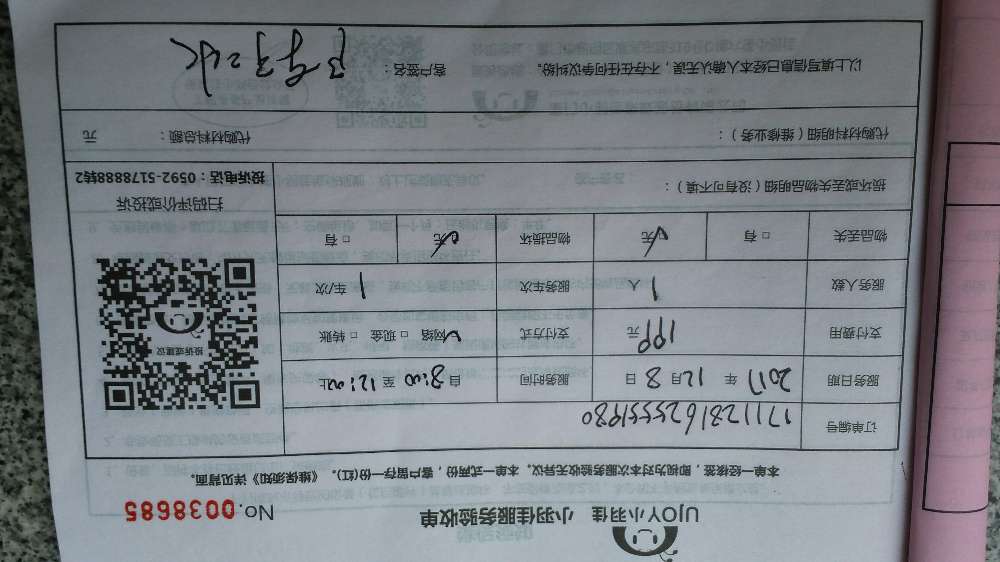 UJOY小羽佳 小羽佳服务验收单 No.0038685
本单一经核签，即视为对本次服务验收无异议。本单一式两份，客户留存一份(红)。《维保须知》详见背面。
订单编号 17112816255551980
服务日期 2017 年 12 月 8 日 服务时间 自 8:00 至 12:00止
支付费用 199 元 支付方式 ☑ 网络 □ 现金 □ 转账
服务人数 1 人 服务车次 1 车/次
物品丢失 □ 有 ☑ 无 物品损坏 ☑ 无 □ 有
投诉或建议
扫码评价或投诉
投诉电话：0592-5178888转2
损坏或丢失物品明细（没有可不填）：
代购材料明细（维修业务）： 代购材料总额： 元
以上填写信息已经本人确认无误，不存在任何争议纠纷。 客户签名：